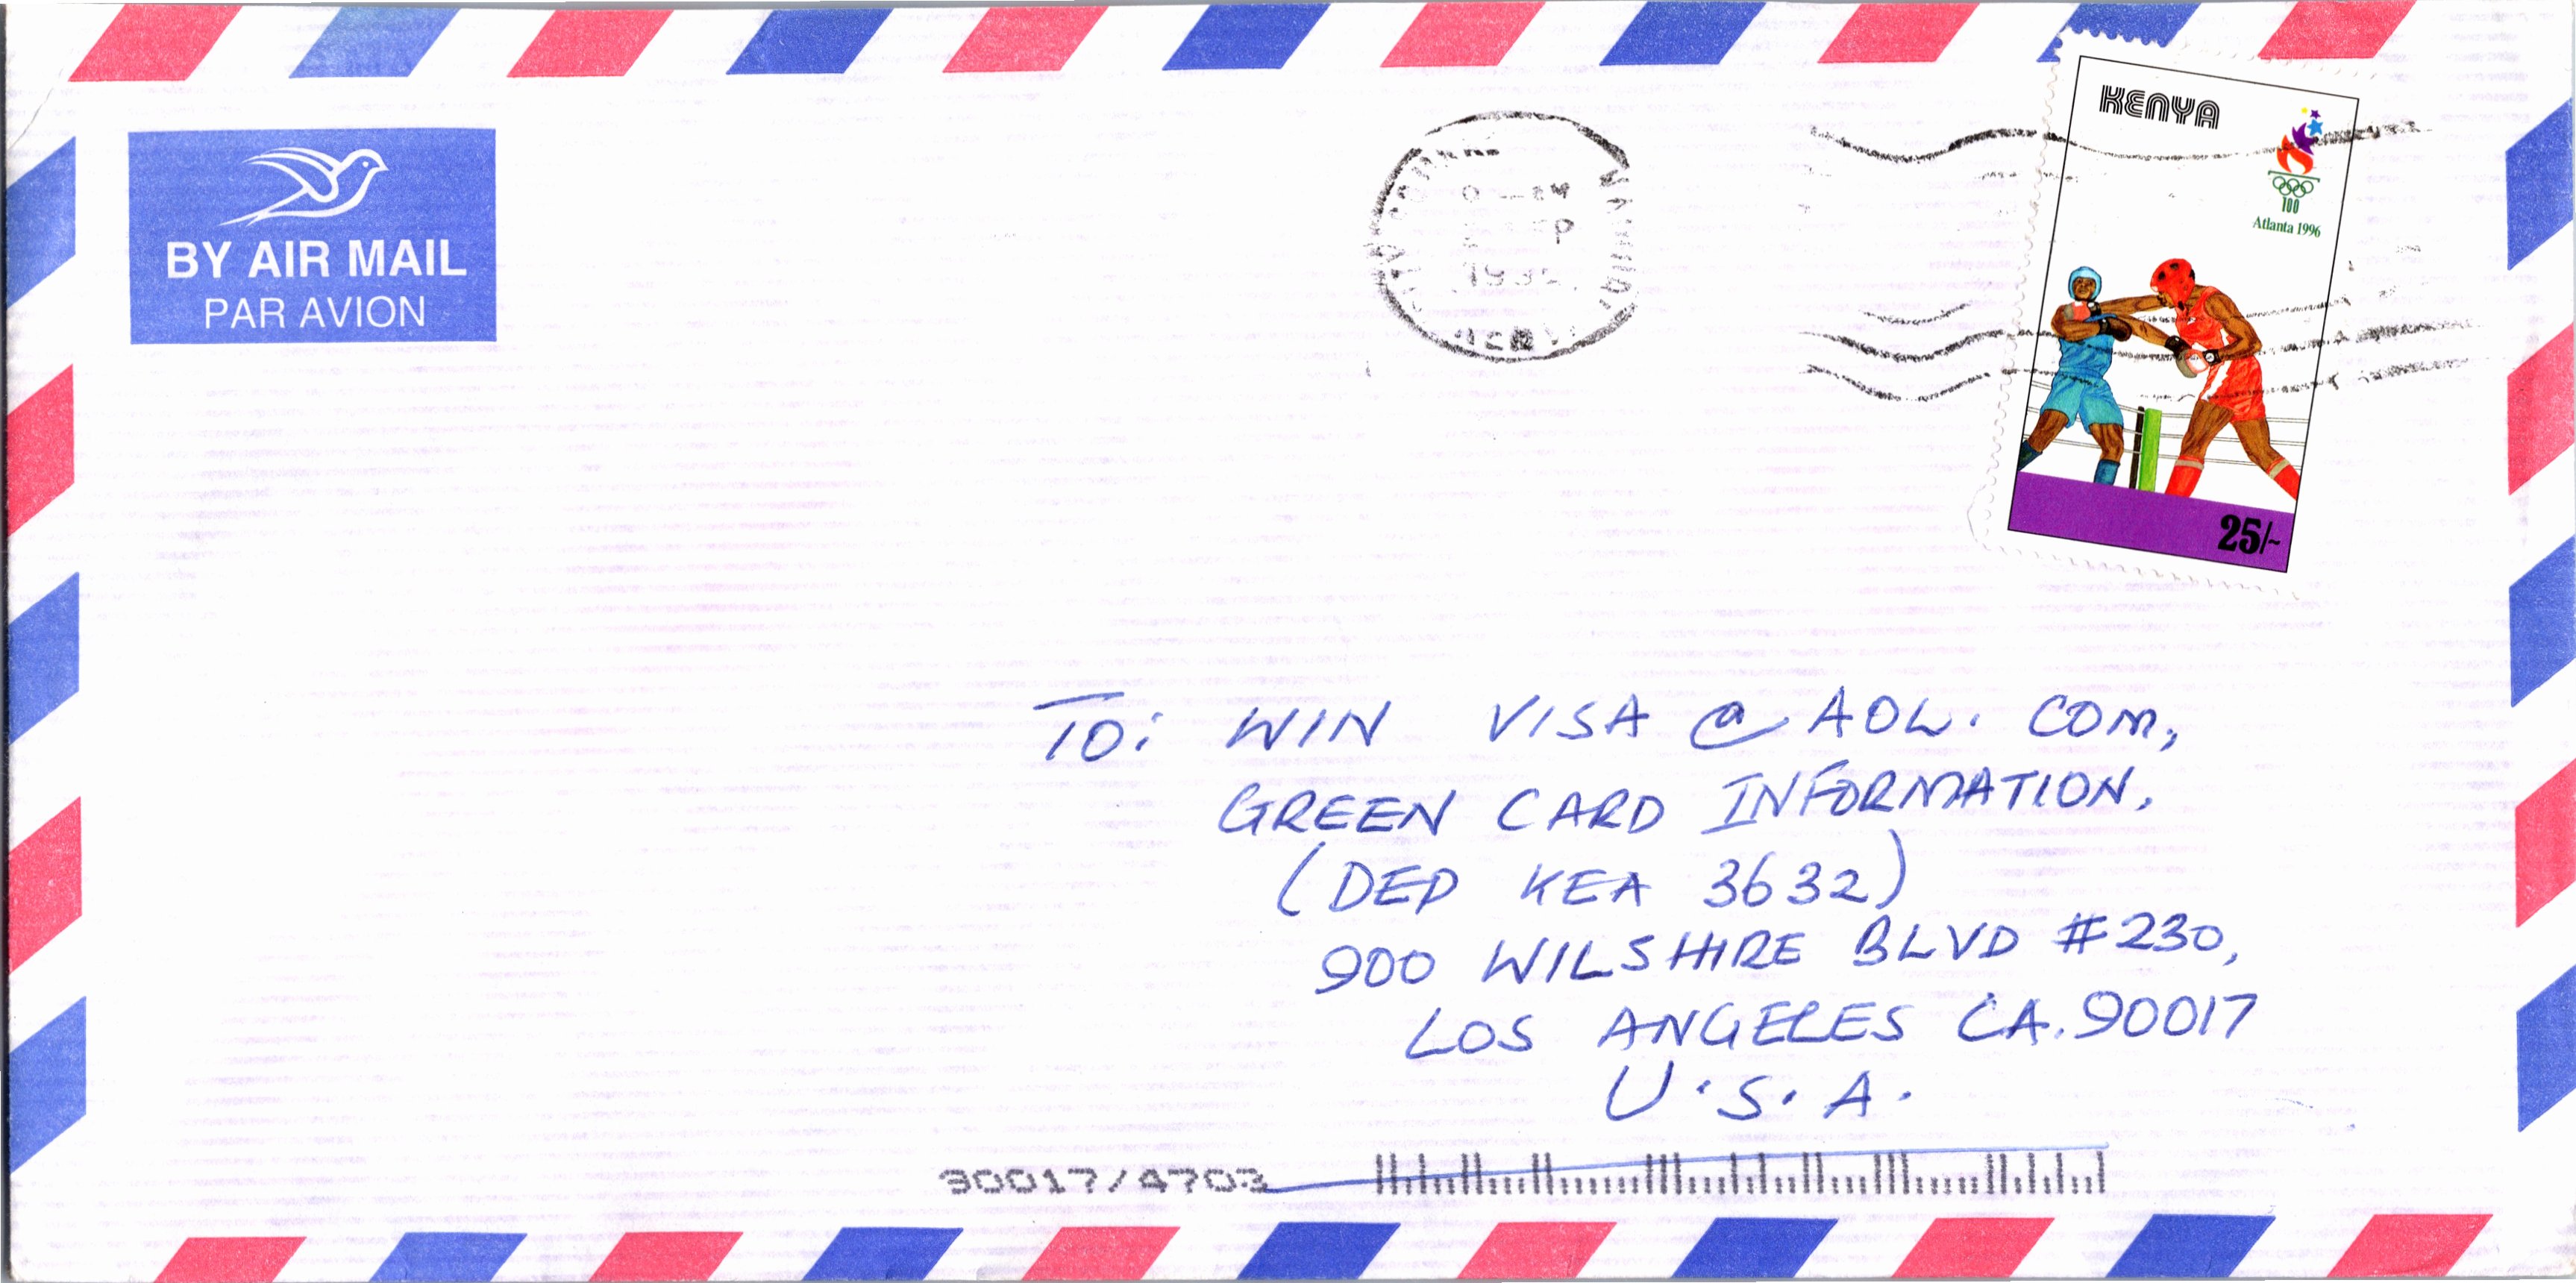 KENYA
100
Atlanta 1996
25/-
BY AIR MAIL
PAR AVION
TO: WIN VISA @ AOL. COM,
GREEN CARD INFORMATION.
(DEP KEA 3632)
900 WILSHIRE BLVD #230,
LOS ANGELES CA. 90017
U.S.A.
90017/4703